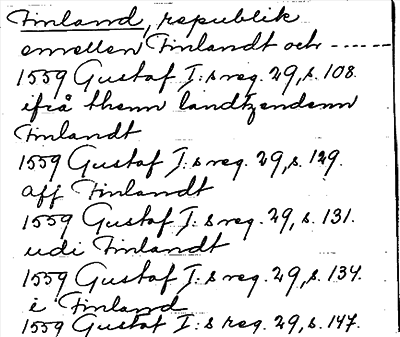 Finland, republik
emellen Finlandt och ------
1559 Gustaf I:s reg. 29, s. 108.
ifrå them landzendenn
Finlandt
1559 Gustaf I:s reg. 29, s. 129.
aff Finlandt
1559 Gustaf I:s reg. 29, s. 131.
udi Finlandt
1559 Gustaf I:s reg. 29, s. 134.
i Finland
1559 Gustaf I:s reg. 29, s. 147.